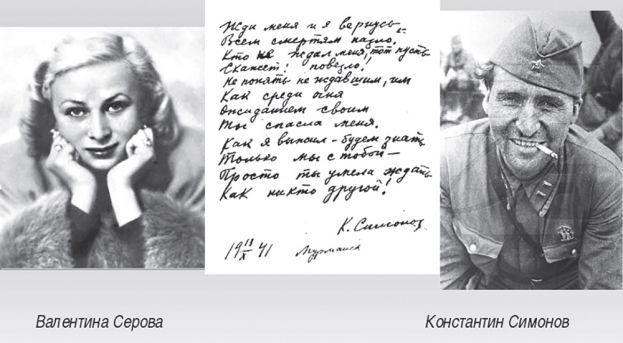 Жди меня и я вернусь
Всем смертям назло.
Кто не ждал меня, тот пусть
Скажет: повезло,
Не понять не ждавшим, им
Как среди огня
Ожиданием своим
Ты спасла меня.
Как я выжил - будем знать
Только мы с тобой -
Просто ты умела ждать
Как никто другой!
К. Симонов
19 18/X 41 Мурманск
Валентина Серова
Константин Симонов